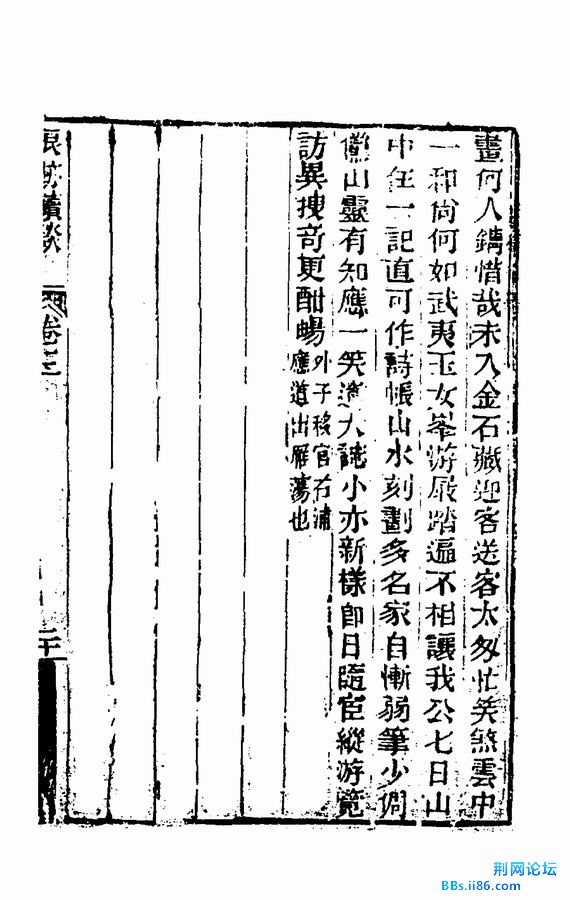 畫何人鐫惜哉未入金石藏迎客送客太匆忙笑煞雲中
一和尚何如武夷玉女峯游屐踏遍不相讓我公七日山
中住一記直可作詩帳山水刻劃多名家自慚弱筆少倜
儻山靈有知應一笑大小亦新樣即日隨宦縱游覽
訪異搜奇更酣暢
外子移官石浦
應道出雁蕩也
浪跡續談
卷三
二十
荆网论坛
BBs.ii86.com